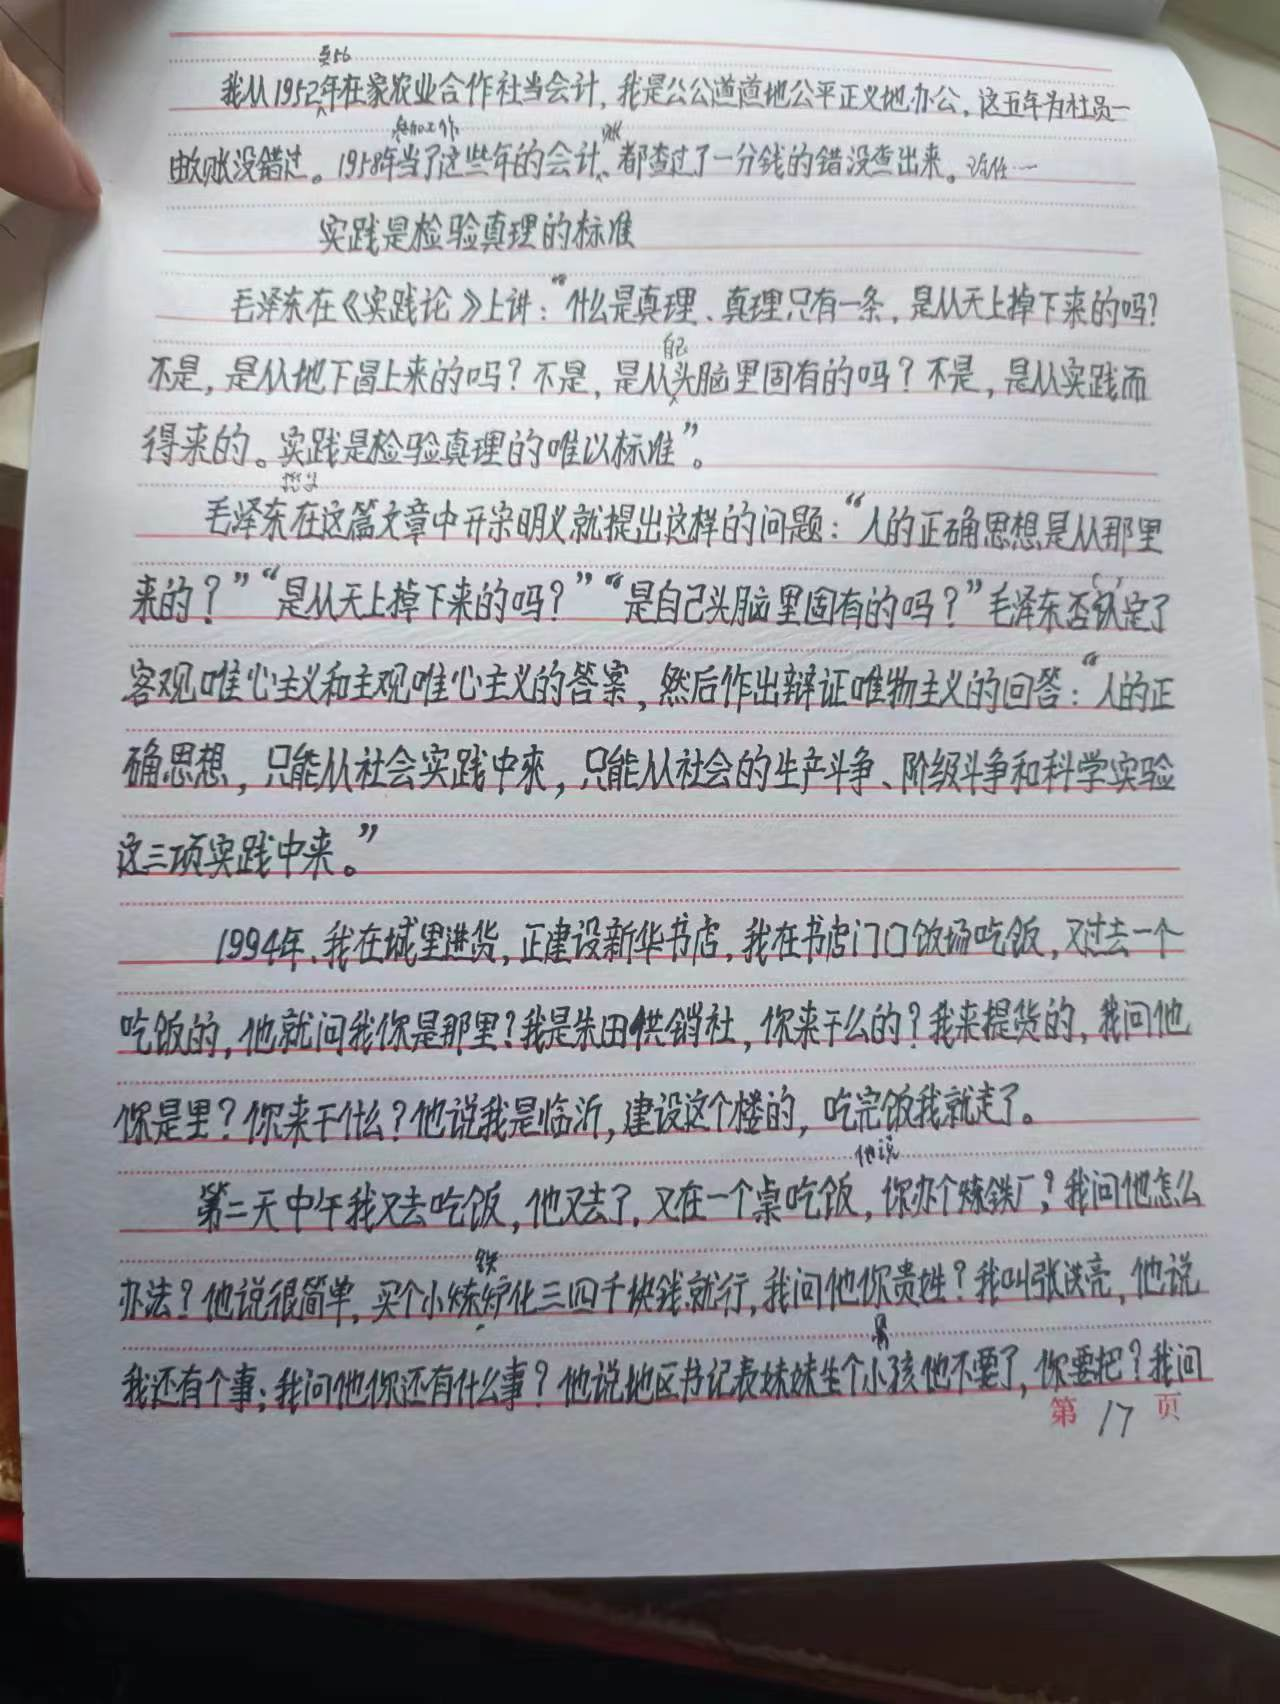 至56
我从1952年在家农业合作社当会计，我是公公道道地公平正义地办公，这五年为社员一
账没错过。1958年当了这些年的会计、都查过了一分钱的错没查出来。
参加工作
账
实践是检验真理的标准
毛泽东在《实践论》上讲：“什么是真理、真理只有一条，是从天上掉下来的吗？
自己
不是，是从地下冒上来的吗？不是，是从头脑里固有的吗？不是，是从实践而
得来的。实践是检验真理的唯以标准”。
毛泽东在这篇文章中开宗明义就提出这样的问题：“人的正确思想是从那里
来的？”“是从天上掉下来的吗？”“是自己头脑里固有的吗？”毛泽东否认定了
客观唯心主义和主观唯心主义的答案，然后作出辩证唯物主义的回答：“人的正
确思想，只能从社会实践中来，只能从社会的生产斗争、阶级斗争和科学实验
这三项实践中来。”
1994年、我在城里进货，正建设新华书店，我在书店门口饭场吃饭，又过去一个
吃饭的，他就问我你是那里？我是朱田供销社，你来干么的？我来提货的，我问他
你是里？你来干什么？他说我是临沂，建设这个楼的，吃完饭我就走了。
他说
第二天中午我又去吃饭，他又去了，又在一个桌吃饭，你办个炼铁厂？我问他怎么
铁
办法？他说很简单，买个小炼炉化三四千块钱就行，我问他你贵姓？我叫张洪亮，他说
男
我还有个事；我问他你还有什么事？他说地区书记表妹妹生个小孩他不要了，你要把？我问
第17页